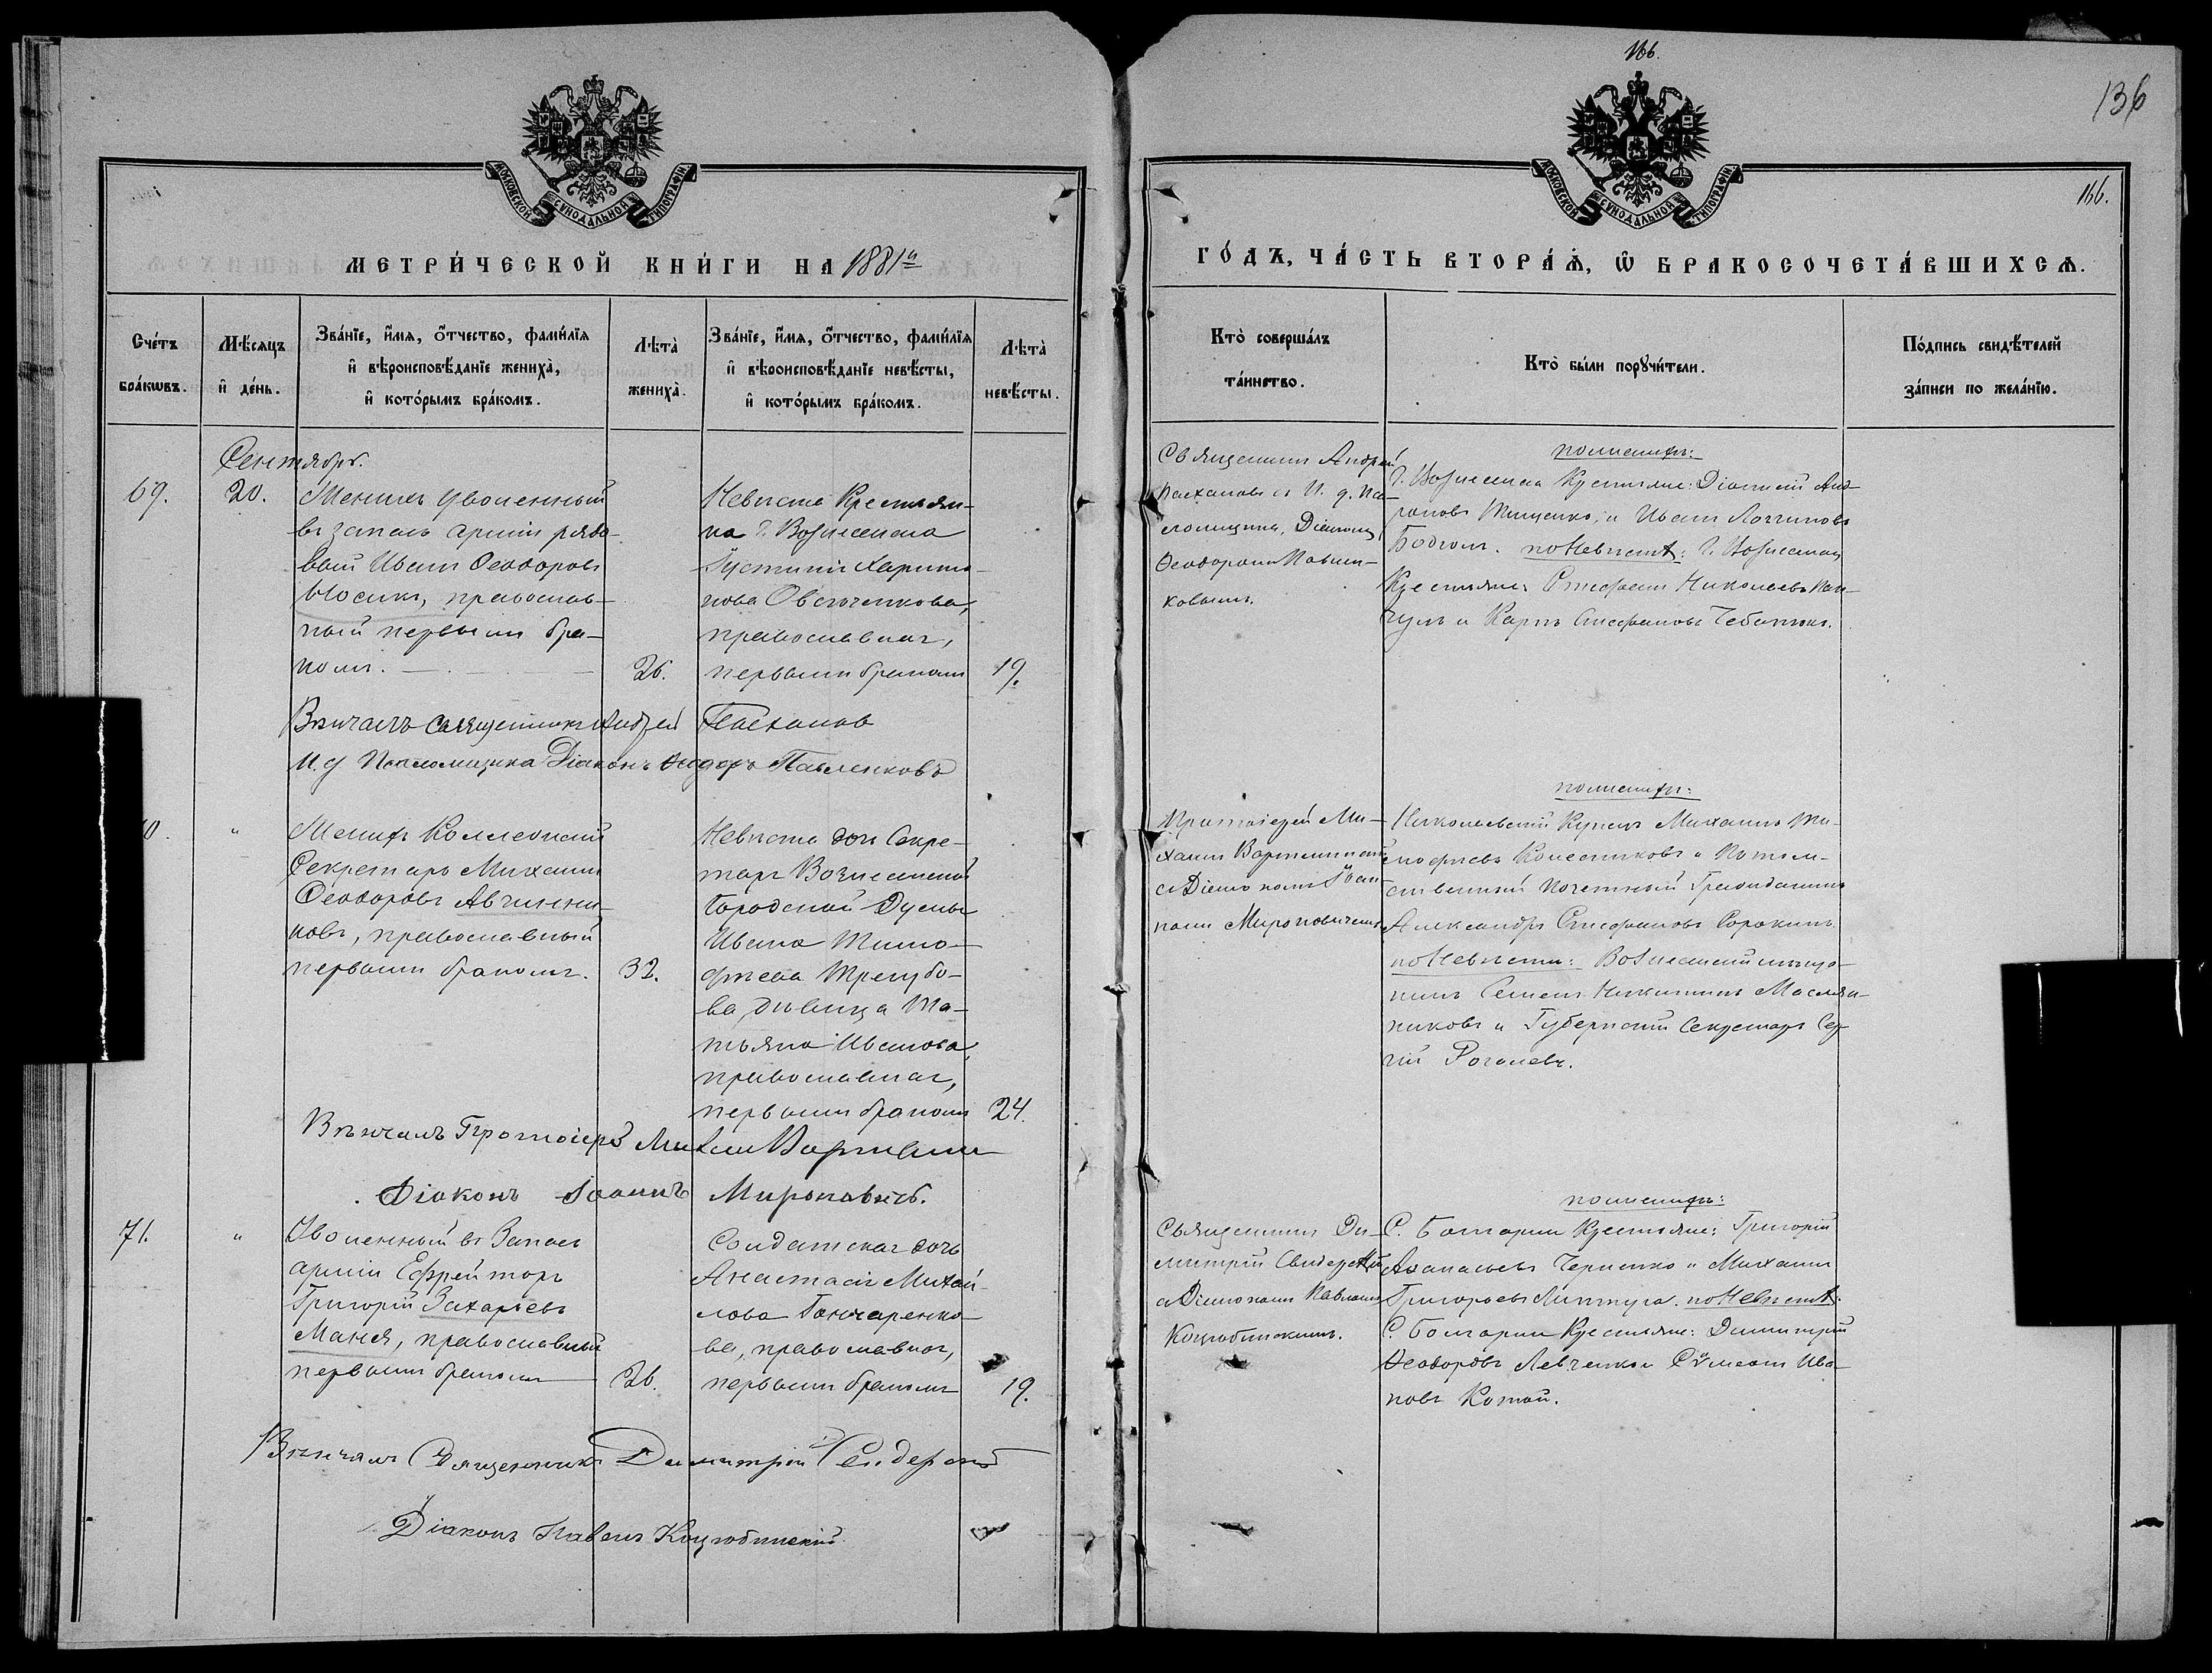 166.
136
166.
МОСКОВСКОЙ СѴНОДАЛЬНОЙ ТИПОГРАФІИ
МОСКОВСКОЙ СѴНОДАЛЬНОЙ ТИПОГРАФІИ
МЕТРИ́ЧЕСКОЙ КНИ́ГИ НА 1881й
ГО́ДЪ, ЧА́СТЬ ВТОРА́Ѧ, Ѡ БРАКОСОЧЕТА́ВШИХСѦ.
Сче́тъ
бра́кѡвъ.
Мѣ́сяцъ
и҆ де́нь.
Зва́нїе, и҆́мѧ, ѻ҆́тчество, фами́лїѧ
и҆ вѣроисповѣ́данїе жениха̀,
и҆ кото́рымъ бра́комъ.
Лѣта̀
жениха̀.
Зва́нїе, и҆́мѧ, ѻ҆́тчество, фами́лїѧ
и҆ вѣроисповѣ́данїе невѣ́сты,
и҆ кото́рымъ бра́комъ.
Лѣта̀
невѣ́сты.
Кто̀ соверша́лъ
та́инство.
Кто̀ бы́ли порꙋчи́тели.
По́дпись свидѣ́телей
за́писи по жела́нїю.
Сентябрь.
69.
20.
Женихъ уволенный
въ запасъ арміи рядо-
вой Иванъ Ѳеодоровъ
Мосикъ, православ-
ный первымъ бра-
комъ.
26.
Невѣста Крестьян-
ка г. Вознесенска
Іустинія Харито-
нова Овсюченкова,
православная,
первымъ бракомъ
19.
Священникъ Андрей
Пасхаловъ съ И. д. Пса-
ломщика, Діакономъ
Ѳеодоромъ Павлен-
ковымъ.
по женихѣ:
г. Вознесенска Крестьяне: Діонисій Анд-
роновъ Тищенко, и Иванъ Логгиновъ
по невѣстѣ: г. Вознесенска
Крестьяне: Стефанъ Николаевъ
и Карпъ Стефановъ Чебанюкъ.
Вѣнчалъ священникъ Андрей Пасхалов
И. д Псаломщика Діаконъ Ѳеодоръ Павленковъ
0.
"
Женихъ Коллежскій
Секретарь Михаилъ
Ѳеодоровъ Авчинни-
ковъ, православный
первымъ бракомъ.
32.
Невѣста дочь Секре-
таря Вознесенской
Городской Думы
Ивана Тимо-
фѣева Трегубо-
ва, дѣвица Та-
тьяна Иванова,
православная,
первымъ бракомъ
24.
Протоіерей Ми-
хаилъ
съ Діакономъ Іоан-
номъ Мироновичемъ
по женихѣ:
Николаевскій Купецъ Михаилъ Ти-
мофѣевъ Колесниковъ и Потом-
ственный Почетный Гражданинъ
Александръ Стефановъ Сорокинъ
по невѣстѣ: Вознесенскій мѣща-
нинъ Семенъ Никитинъ Масляни-
никовъ и Губернскій Секретарь Сер-
гій Рогалевъ.
Вѣнчалъ Протоіерей Михаил
Діаконъ Іоаннъ Мироновичъ.
71.
"
Уволенный въ Запасъ
арміи Ефрейторъ
Григорій Захарьевъ
Маней, православный
первымъ бракомъ
26.
Солдатская дочь
Анастасія Михай-
лова Гончаренко-
ва, православная,
первымъ бракомъ
19.
Священникъ Ди-
митрій Свидерскій
съ Діакономъ Павломъ
Коцюбинскимъ.
по женихѣ:
С. Болгарки Крестьяне: Григорій
Аѳанасьевъ Черненко и Михаилъ
Григорьевъ по невѣстѣ:
С. Болгарки Крестьяне: Димитрій
Ѳеодоровъ Левченко и Сѵмеонъ Ива-
новъ Котой.
Вѣнчалъ Священникъ Димитрій Свидерскій
Діаконъ Павелъ Коцюбинскій